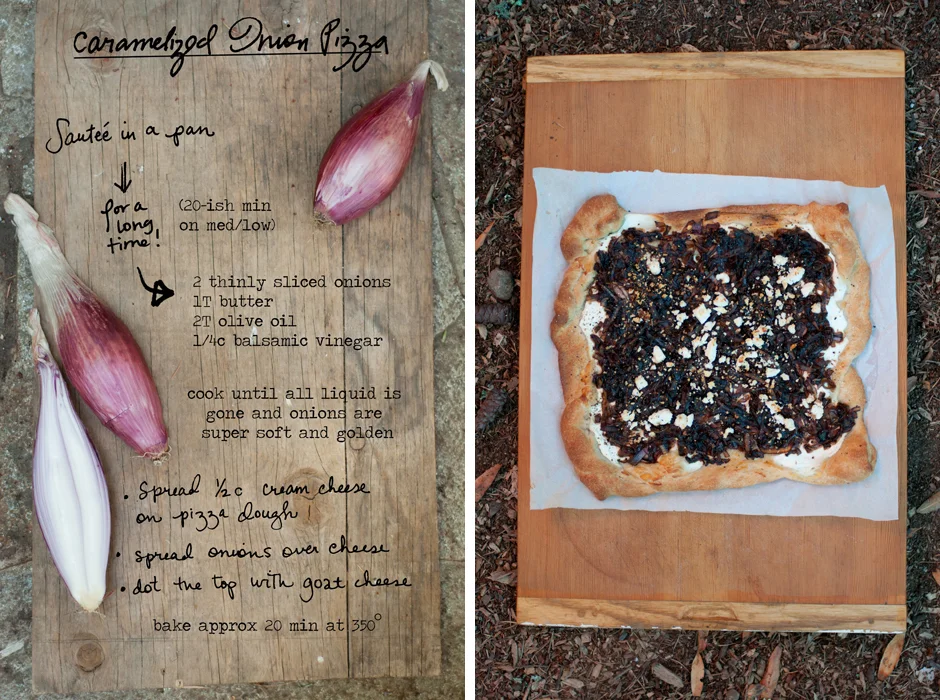 Caramelized Onion Pizza
Sauteé in a pan
for a
long
time!
(20-ish min
on med/low)
2 thinly sliced onions
1T butter
2T olive oil
1/4c balsamic vinegar
cook until all liquid is
gone and onions are
super soft and golden
• Spread 1/2 c cream cheese
on pizza dough!
• spread onions over cheese
• dot the top with goat cheese
bake approx 20 min at 350°